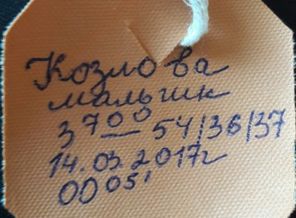 Козлова
мальчик
3700 — 54/36/37
14.03.2017г
00 05'